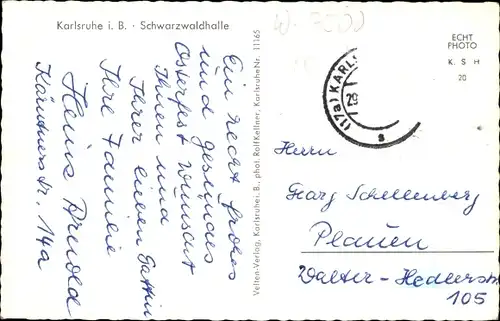 Karlsruhe i. B. · Schwarzwaldhalle
Ein recht frohes
und gesundes
Osterfest wünscht
Ihnen und
Ihrer lieben Gattin
Ihre Familie
Heinz Arnold
Kärntnerstr. 14a
Velten-Verlag, Karlsruhe i. B., phot. Rolf Kellner, Karlsruhe Nr. 11165
ECHT
PHOTO
K. S. H
20
(17a) KARL
Herrn
Georg Schellenberg
Plauen
Walter-Hedlerstr
105